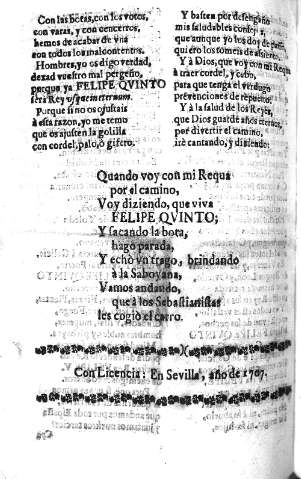 Con las botas, con los votos,
con varas, y con cencerros,
hemos de acabar de vna
con todos los malcontentos.
Hombres, yo os digo verdad,
dexad vuestro mal pergeño,
porque ya FELIPE QVINTO
será Rey vsque in eternum.
Porque si no os ajustais
à esta razon, yo me temo
que os ajusten la golilla
con cordel, palo, ò
Y basten por desengaño
mis saludables consejos,
que aunque yo los doy de
quiero los tomeis de assiento.
Y à Dios, que voy con mi Requa
à traer cordel, y cebo,
para que tenga el verdugo
prevenciones de repuesto.
Y à la salud de los Reyes,
que Dios guarde años eternos,
por divertir el camino,
irè cantando, y diziendo:
Quando voy con mi Requa
por el camino,
Voy diziendo, que viva
FELIPE QVINTO;
Y sacando la bota,
hago parada,
Y echo vn trago, brindando
à la Saboyana,
Vamos andando,
que à los Sebastianistas
les cogiò el carro.
Con Licencia: En Sevilla, año de 1707.